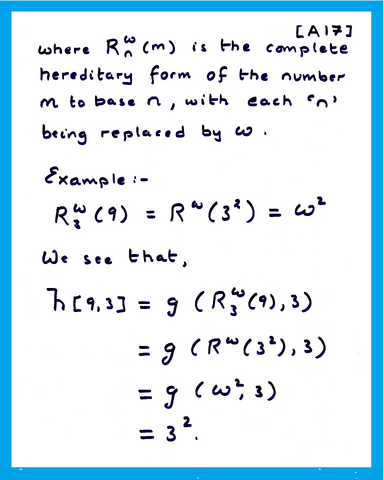 [A17]
where R_n^ω(m) is the complete
hereditary form of the number
m to base n, with each 'n'
being replaced by ω.
Example:-
R_3^ω(9) = R^ω(3²) = ω²
We see that,
ℏ[9,3] = g (R_3^ω(9), 3)
= g (R^ω(3²), 3)
= g (ω², 3)
= 3².